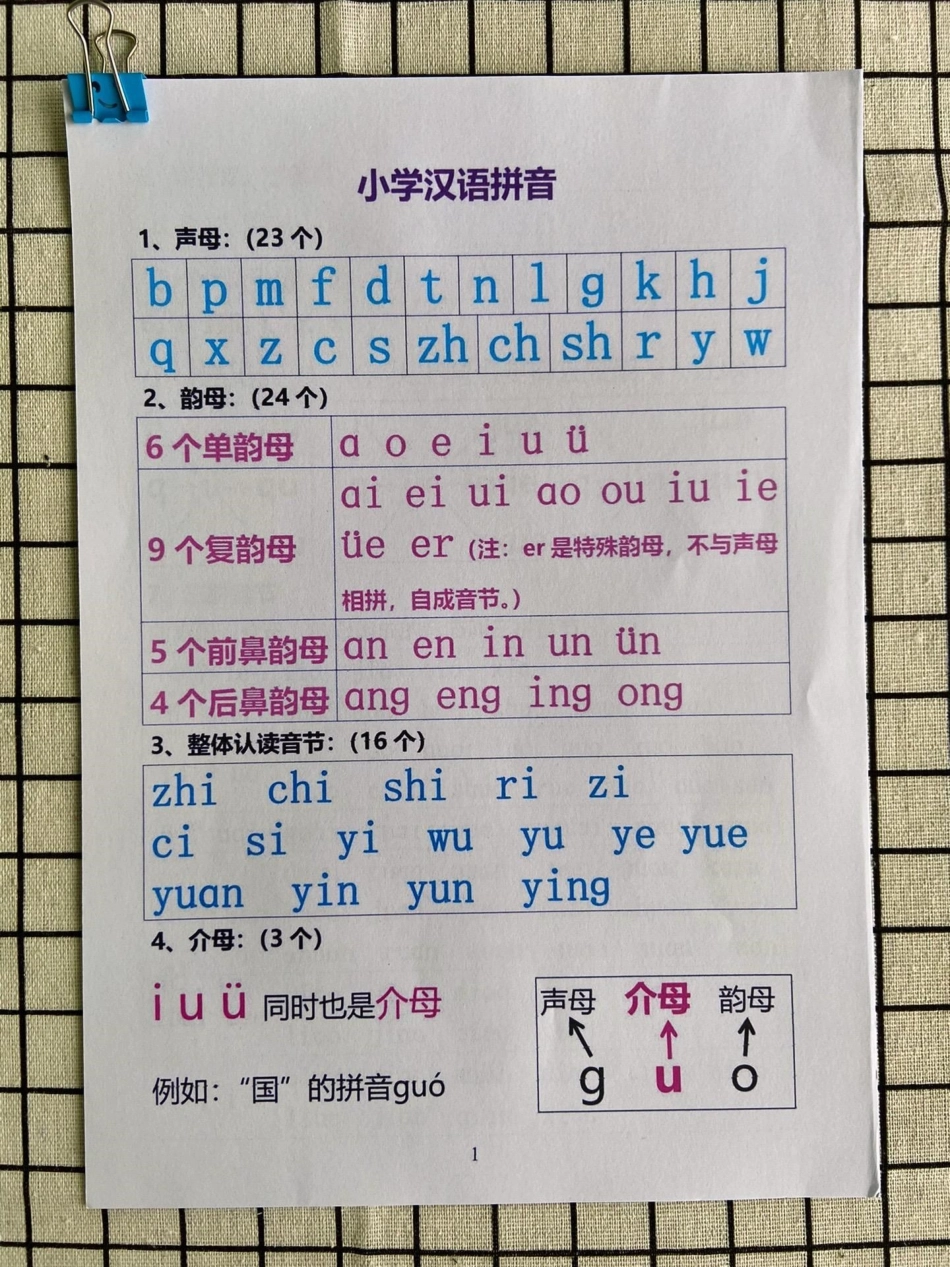 小学汉语拼音
1、声母：(23 个)
b p m f d t n l g k h j
q x z c s zh ch sh r y w
2、韵母：(24 个)
6 个单韵母 ɑ o e i u ü
ɑi ei ui ɑo ou iu ie
9 个复韵母 üe er (注：er 是特殊韵母，不与声母
相拼，自成音节。)
5 个前鼻韵母 ɑn en in un ün
4 个后鼻韵母 ɑng eng ing ong
3、整体认读音节：(16 个)
zhi chi shi ri zi
ci si yi wu yu ye yue
yuɑn yin yun ying
4、介母：(3 个)
i u ü 同时也是介母
例如：“国”的拼音guó
声母 介母 韵母
g u o
1